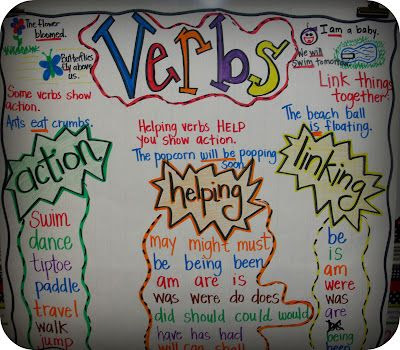 The flower
bloomed.
Butterflies
fly above
us.
Verbs
I am a baby.
We will
swim tomorrow
Some verbs show
action.
Ants eat crumbs.
Helping verbs HELP
you show action.
The popcorn will be popping
soon.
Link things
together.
The beach ball
is floating.
action
swim
dance
tiptoe
paddle
travel
walk
jump
helping
may might must
be being been
am are is
was were do does
did should could would
have has had
will can shall
linking
be
is
am
were
was
are
be
being
been